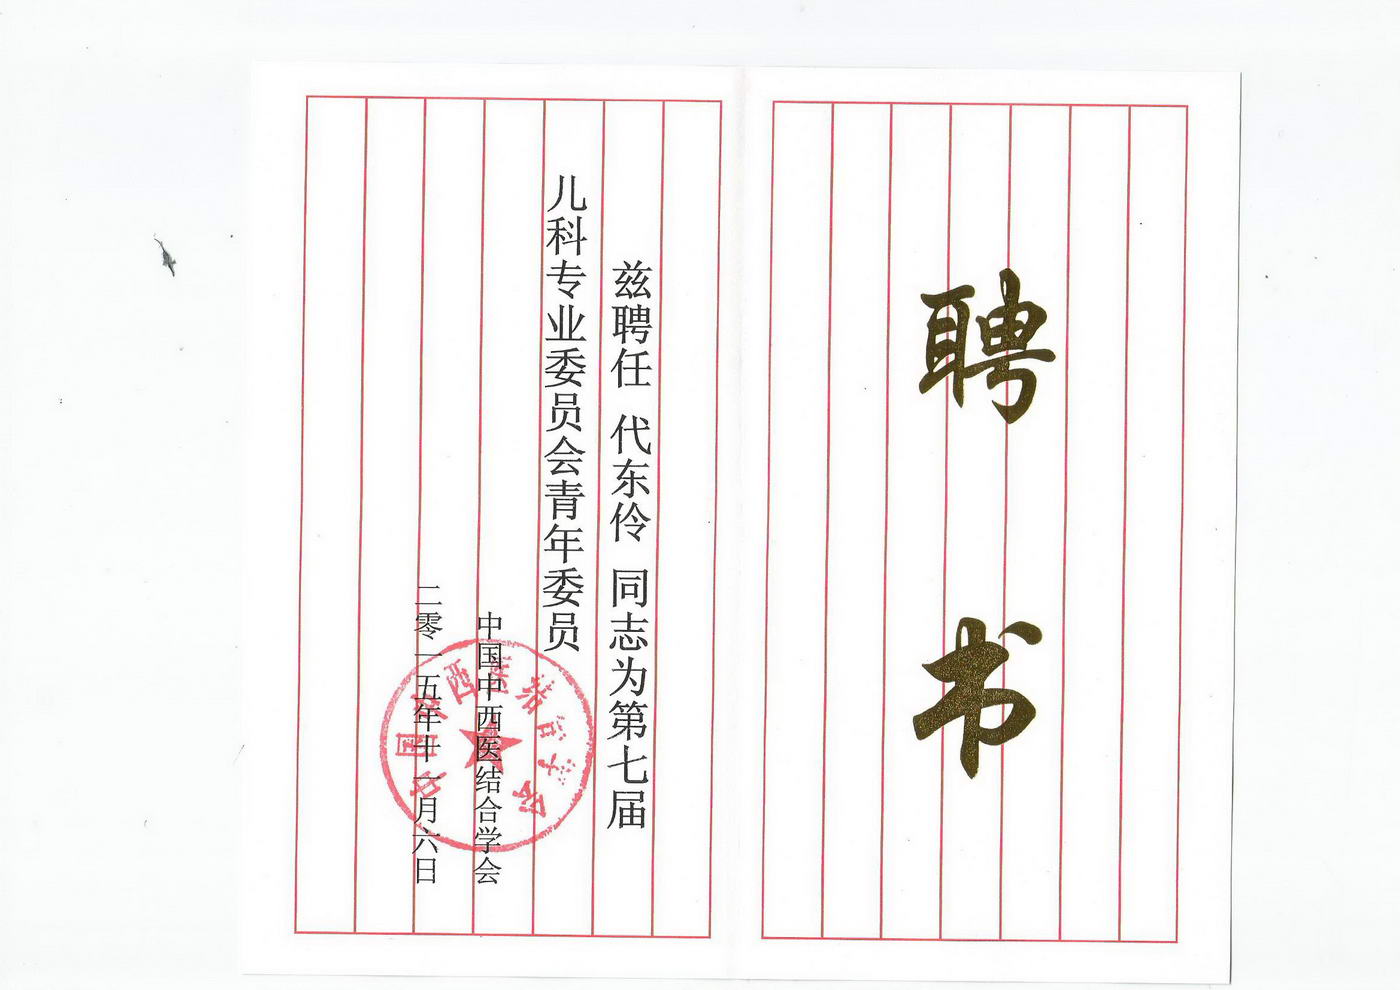 聘书
兹聘任 代东伶 同志为第七届
儿科专业委员会青年委员
中国中西医结合学会
二零一五年十一月六日
中国中西医结合学会